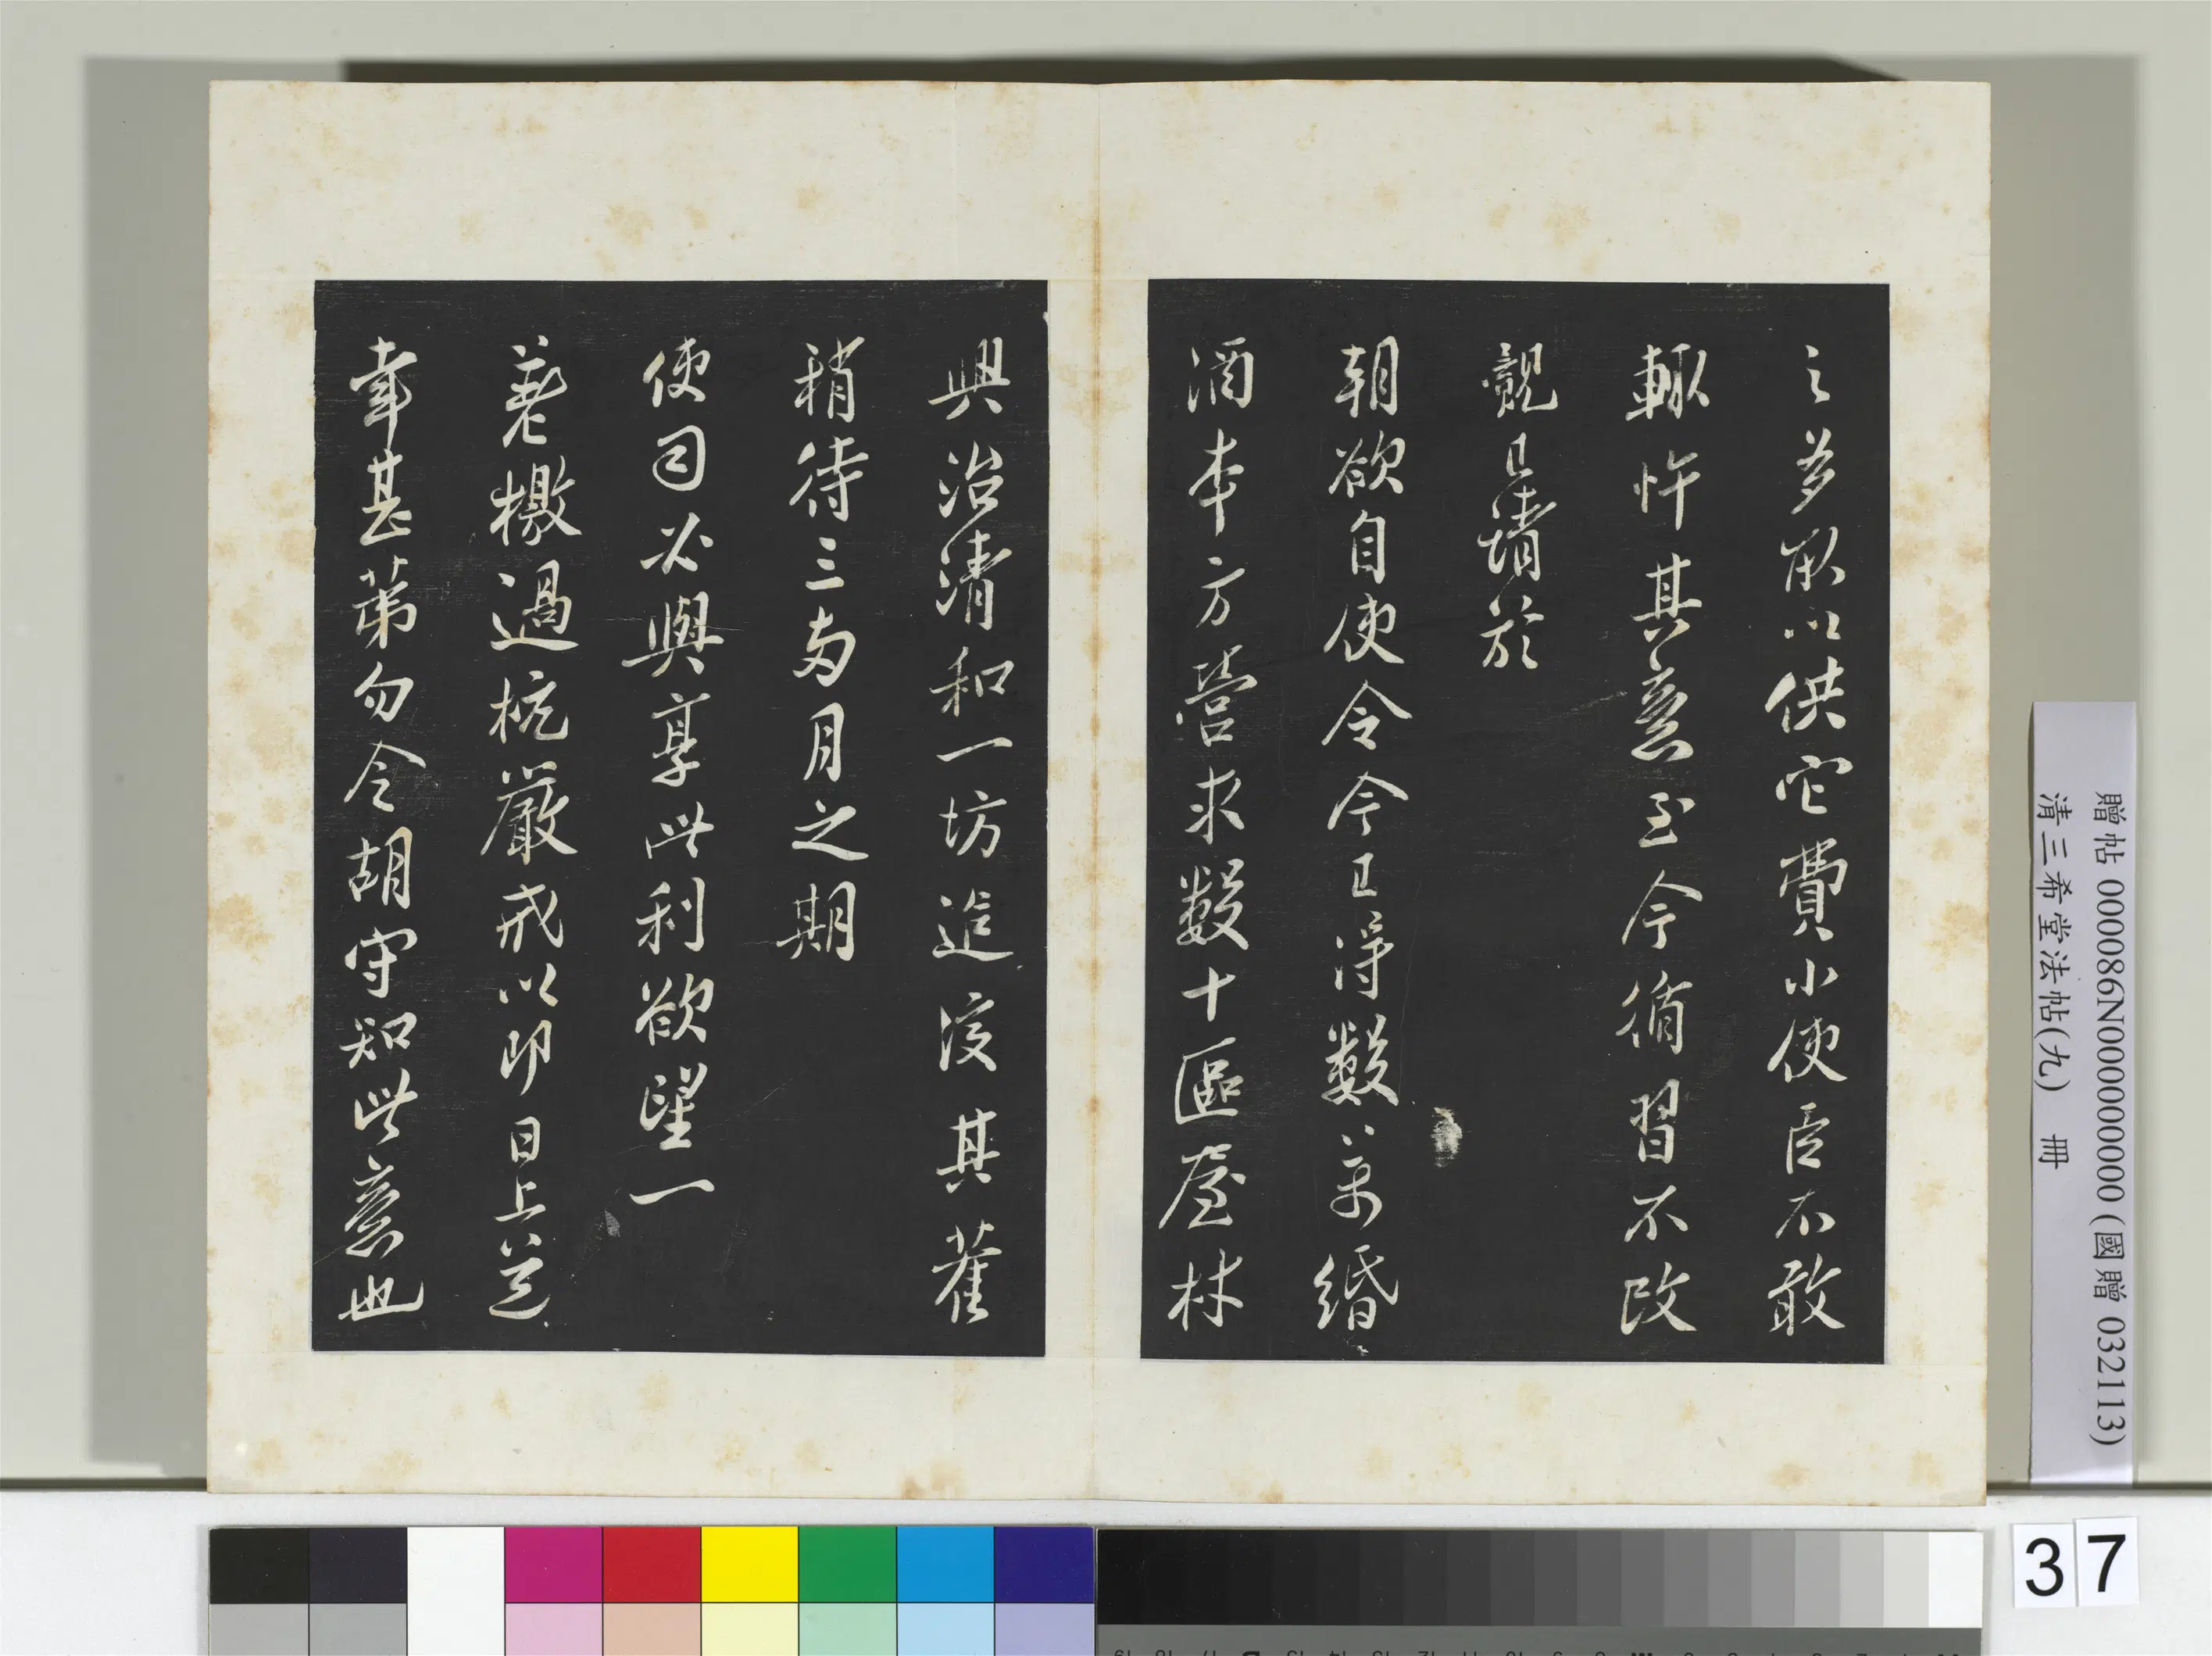 之多敢以供它費小使臣不敢
輒忤其意至今循習不改
觀且請於
朝欲自使令今已得數万緡
酒本方營求數十區屋材
興治清和一坊造
其舊
稍待三两月之期
使司必與享此利欲望一
檄過杭嚴戒以即日上道
幸甚第勿令胡守知此意也
贈帖 000086N000000000 (國贈 032113)
清三希堂法帖(九) 冊
37